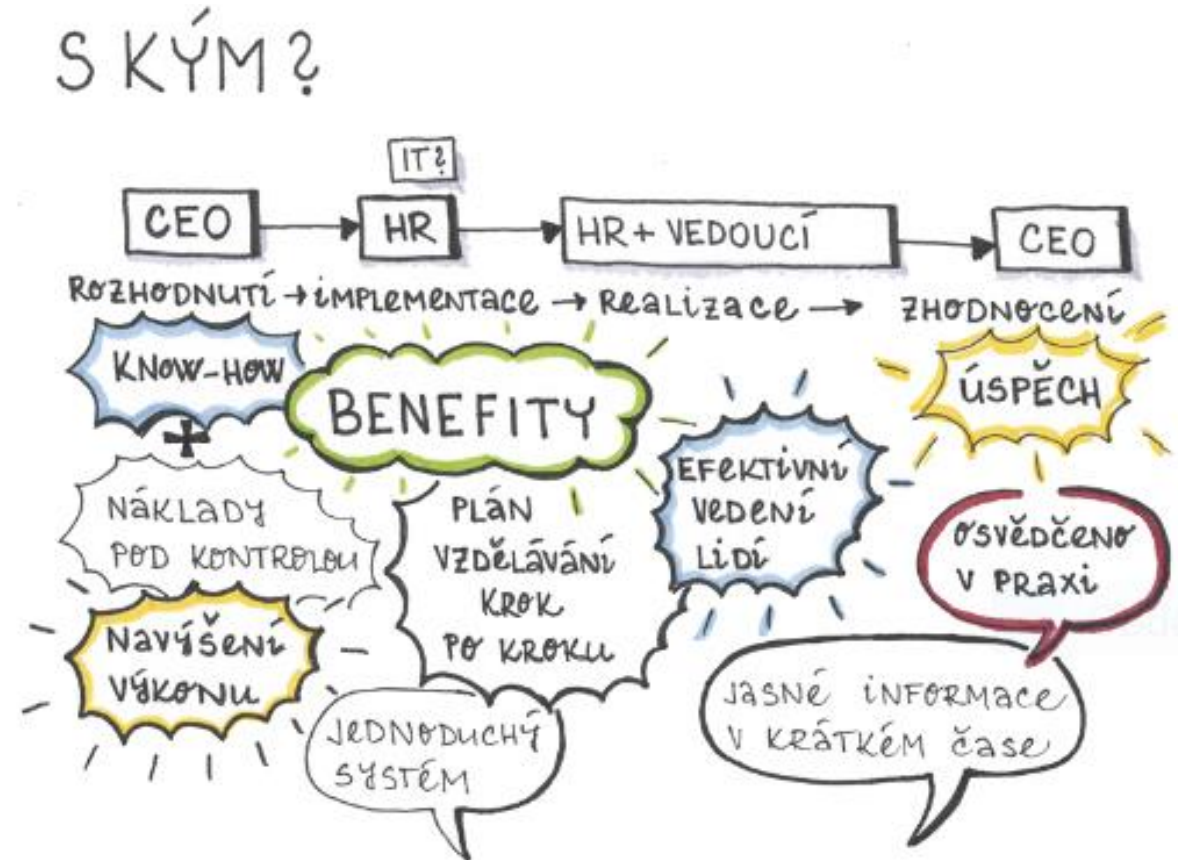 S KÝM?
IT?
CEO → HR → HR + VEDOUCÍ → CEO
ROZHODNUTÍ → IMPLEMENTACE → REALIZACE → ZHODNOCENÍ
KNOW-HOW
+
NÁKLADY
POD KONTROLOU
NAVÝŠENÍ
VÝKONU
BENEFITY
PLÁN
VZDĚLÁVÁNÍ
KROK
PO KROKU
JEDNODUCHÝ
SYSTÉM
EFEKTIVNÍ
VEDENÍ
LIDÍ
ÚSPĚCH
OSVĚDČENO
V PRAXI
JASNÉ INFORMACE
V KRÁTKÉM ČASE